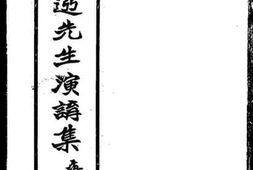 先生演講集